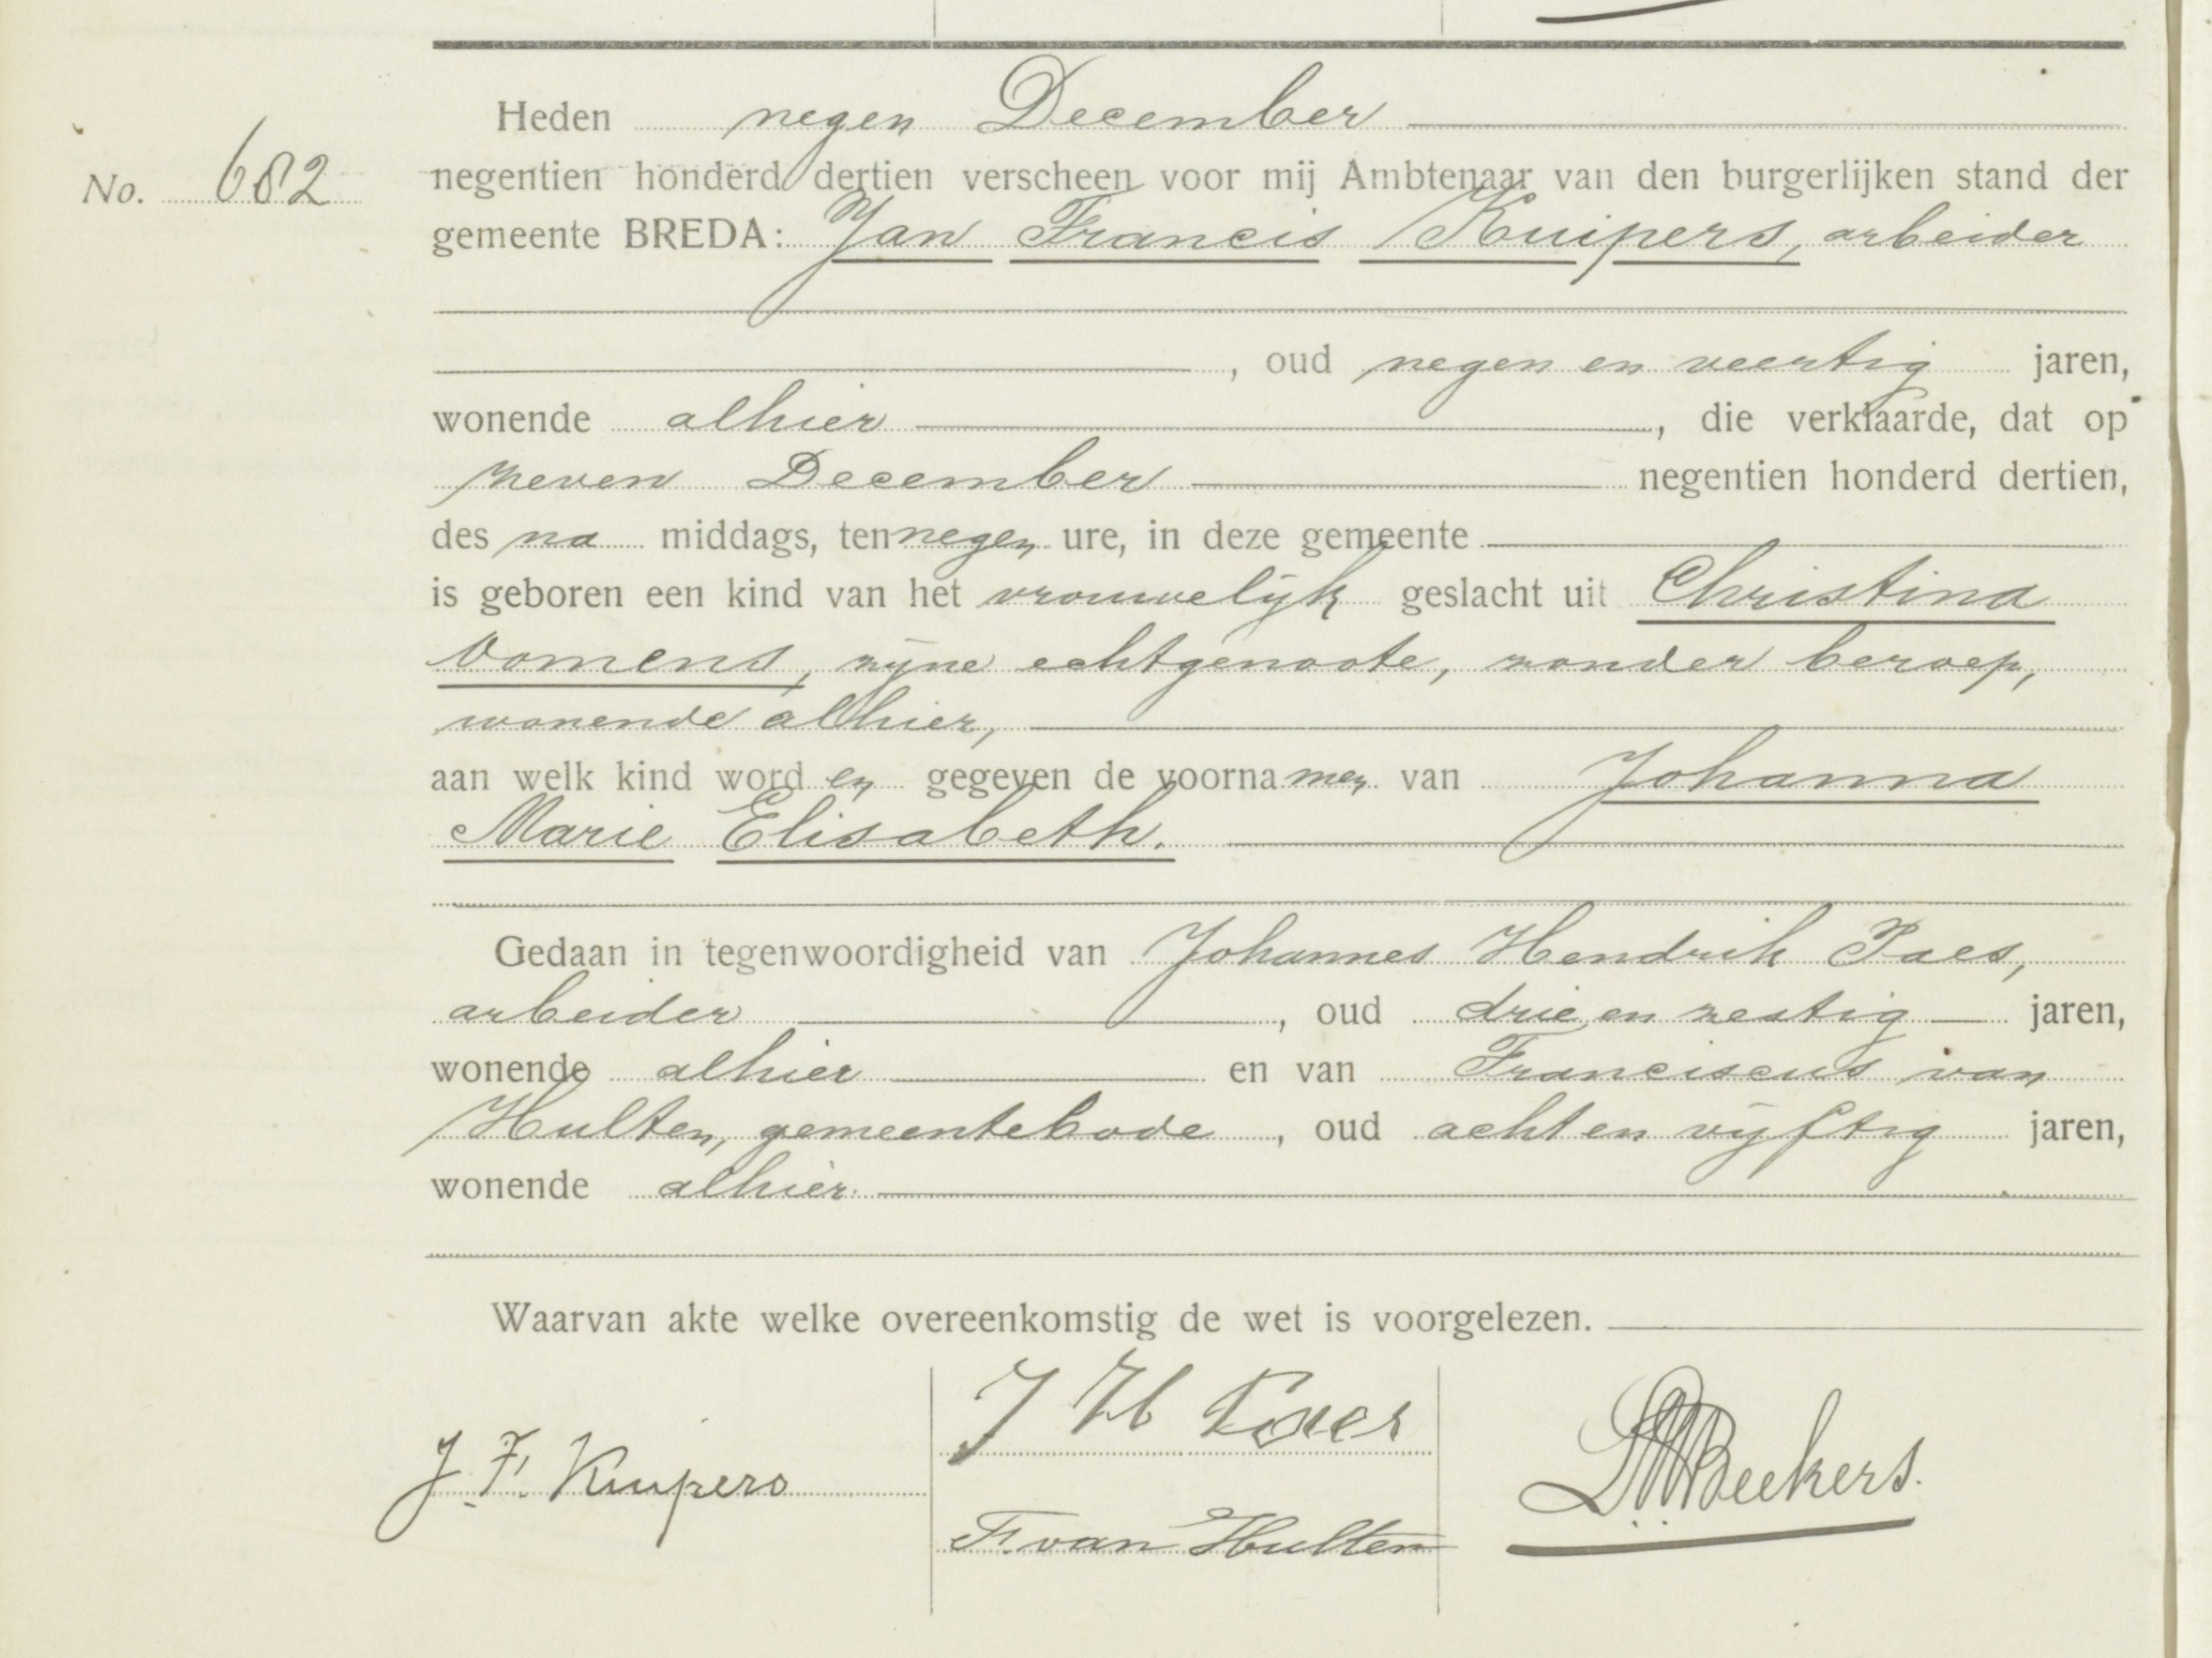 No. 682
Heden negen December
negentien honderd dertien verscheen voor mij Ambtenaar van den burgerlijken stand der
gemeente BREDA: Jan Francis Kuipers, arbeider
, oud negen en veertig jaren,
wonende alhier , die verklaarde, dat op
zeven December negentien honderd dertien,
des na middags, ten negen ure, in deze gemeente
is geboren een kind van het vrouwelijk geslacht uit Christina
Oomens, zijne echtgenoote, zonder beroep,
wonende alhier,
aan welk kind worden gegeven de voornamen van Johanna
Marie Elisabeth.
Gedaan in tegenwoordigheid van Johannes Hendrik Paes,
arbeider , oud drie en zestig jaren,
wonende alhier en van Franciscus van
Hulten, gemeentebode , oud acht en vijftig jaren,
wonende alhier.
Waarvan akte welke overeenkomstig de wet is voorgelezen.
J H Paes
J. F. Kuipers
Beekers.
F. van Hulten